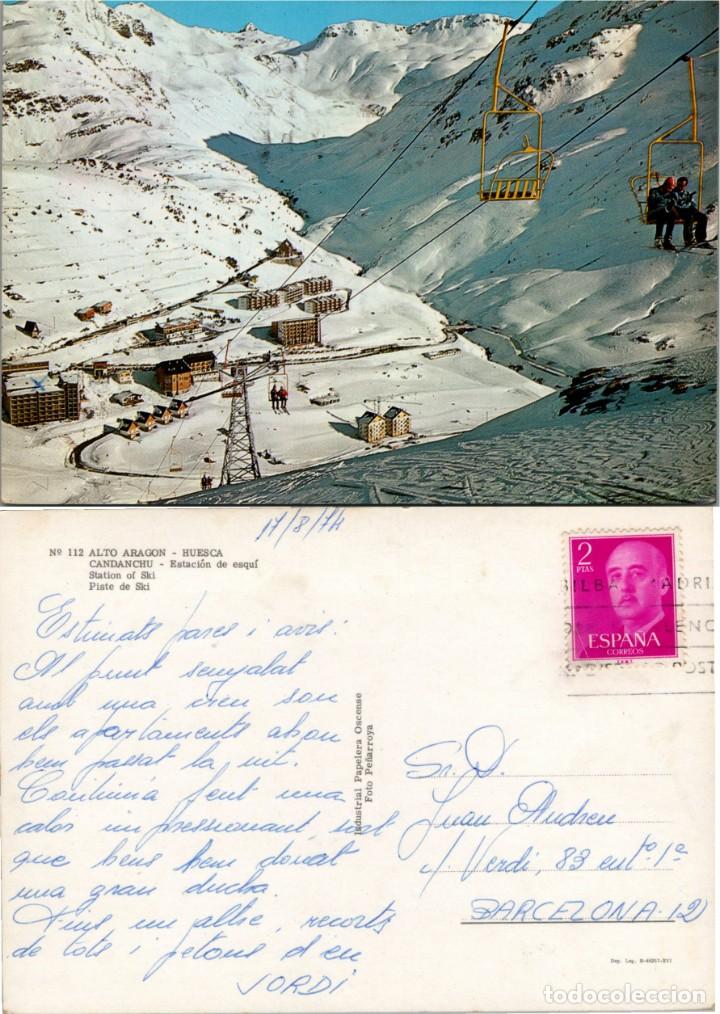 17/8/74
Nº 112 ALTO ARAGON - HUESCA
CANDANCHU - Estación de esquí
Station of Ski
Piste de Ski
2
PTAS
ESPAÑA
CORREOS
BILBA MADRI
Estimats pares i avis:
Al punt senyalat
amb una
son
els apartaments ahon
hem passat la nit.
Continúa fent una
calor impressionant, sort
que hens hem donat
una gran dutxa.
Fins un altre, recorts
de tots i petons d'en
JORDI
Industrial Papelera Oscense
Foto Peñarroya
Sr. D.
Juan Andreu
c/. Verdi, 83 entº. 1ª
BARCELONA-12
Dep. Leg. B-46257-XVI
todocoleccion.net